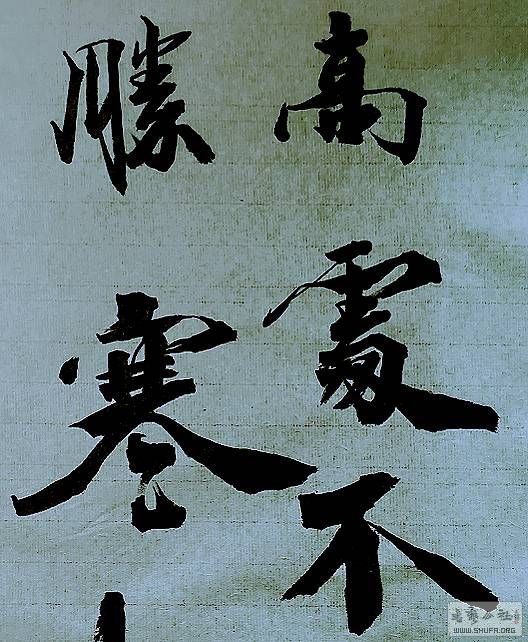 高處不
勝寒
WWW.SHUFA.ORG